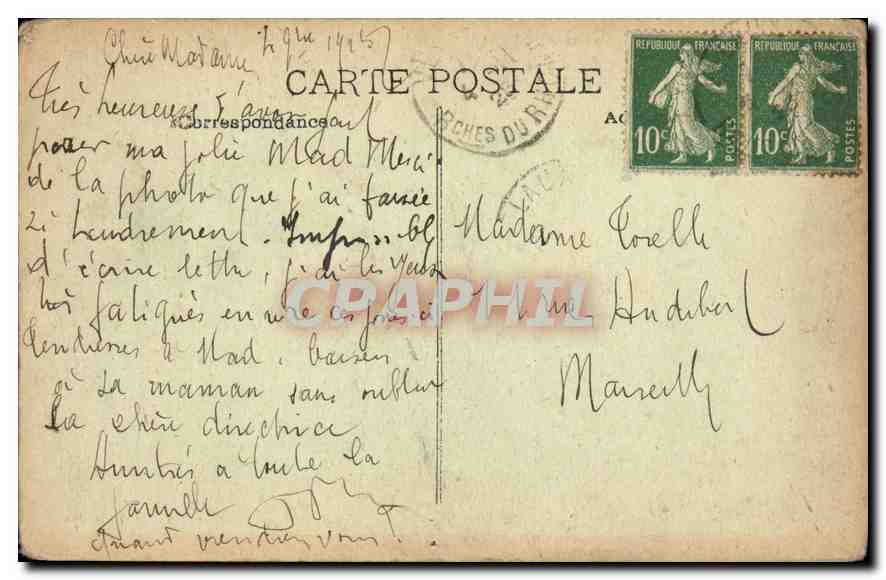 Chère Madame
CARTE POSTALE
Correspondance
Très heureuse d'avoir fait
poser ma jolie Mad Merci
de la photo que j'ai
si tendrement. Impossible
d'écrire lettre, j'ai les yeux
très fatigués encore ces jours ci
Tendresses à Mad, baisers
à sa maman sans oublier
la chère directrice
Amitiés à toute la
famille
Quand viendrez vous?
RCHES DU RH
REPUBLIQUE FRANÇAISE
10c
POSTES
REPUBLIQUE FRANÇAISE
10c
POSTES
Madame
rue Audibert
Marseille
CPAPHIL